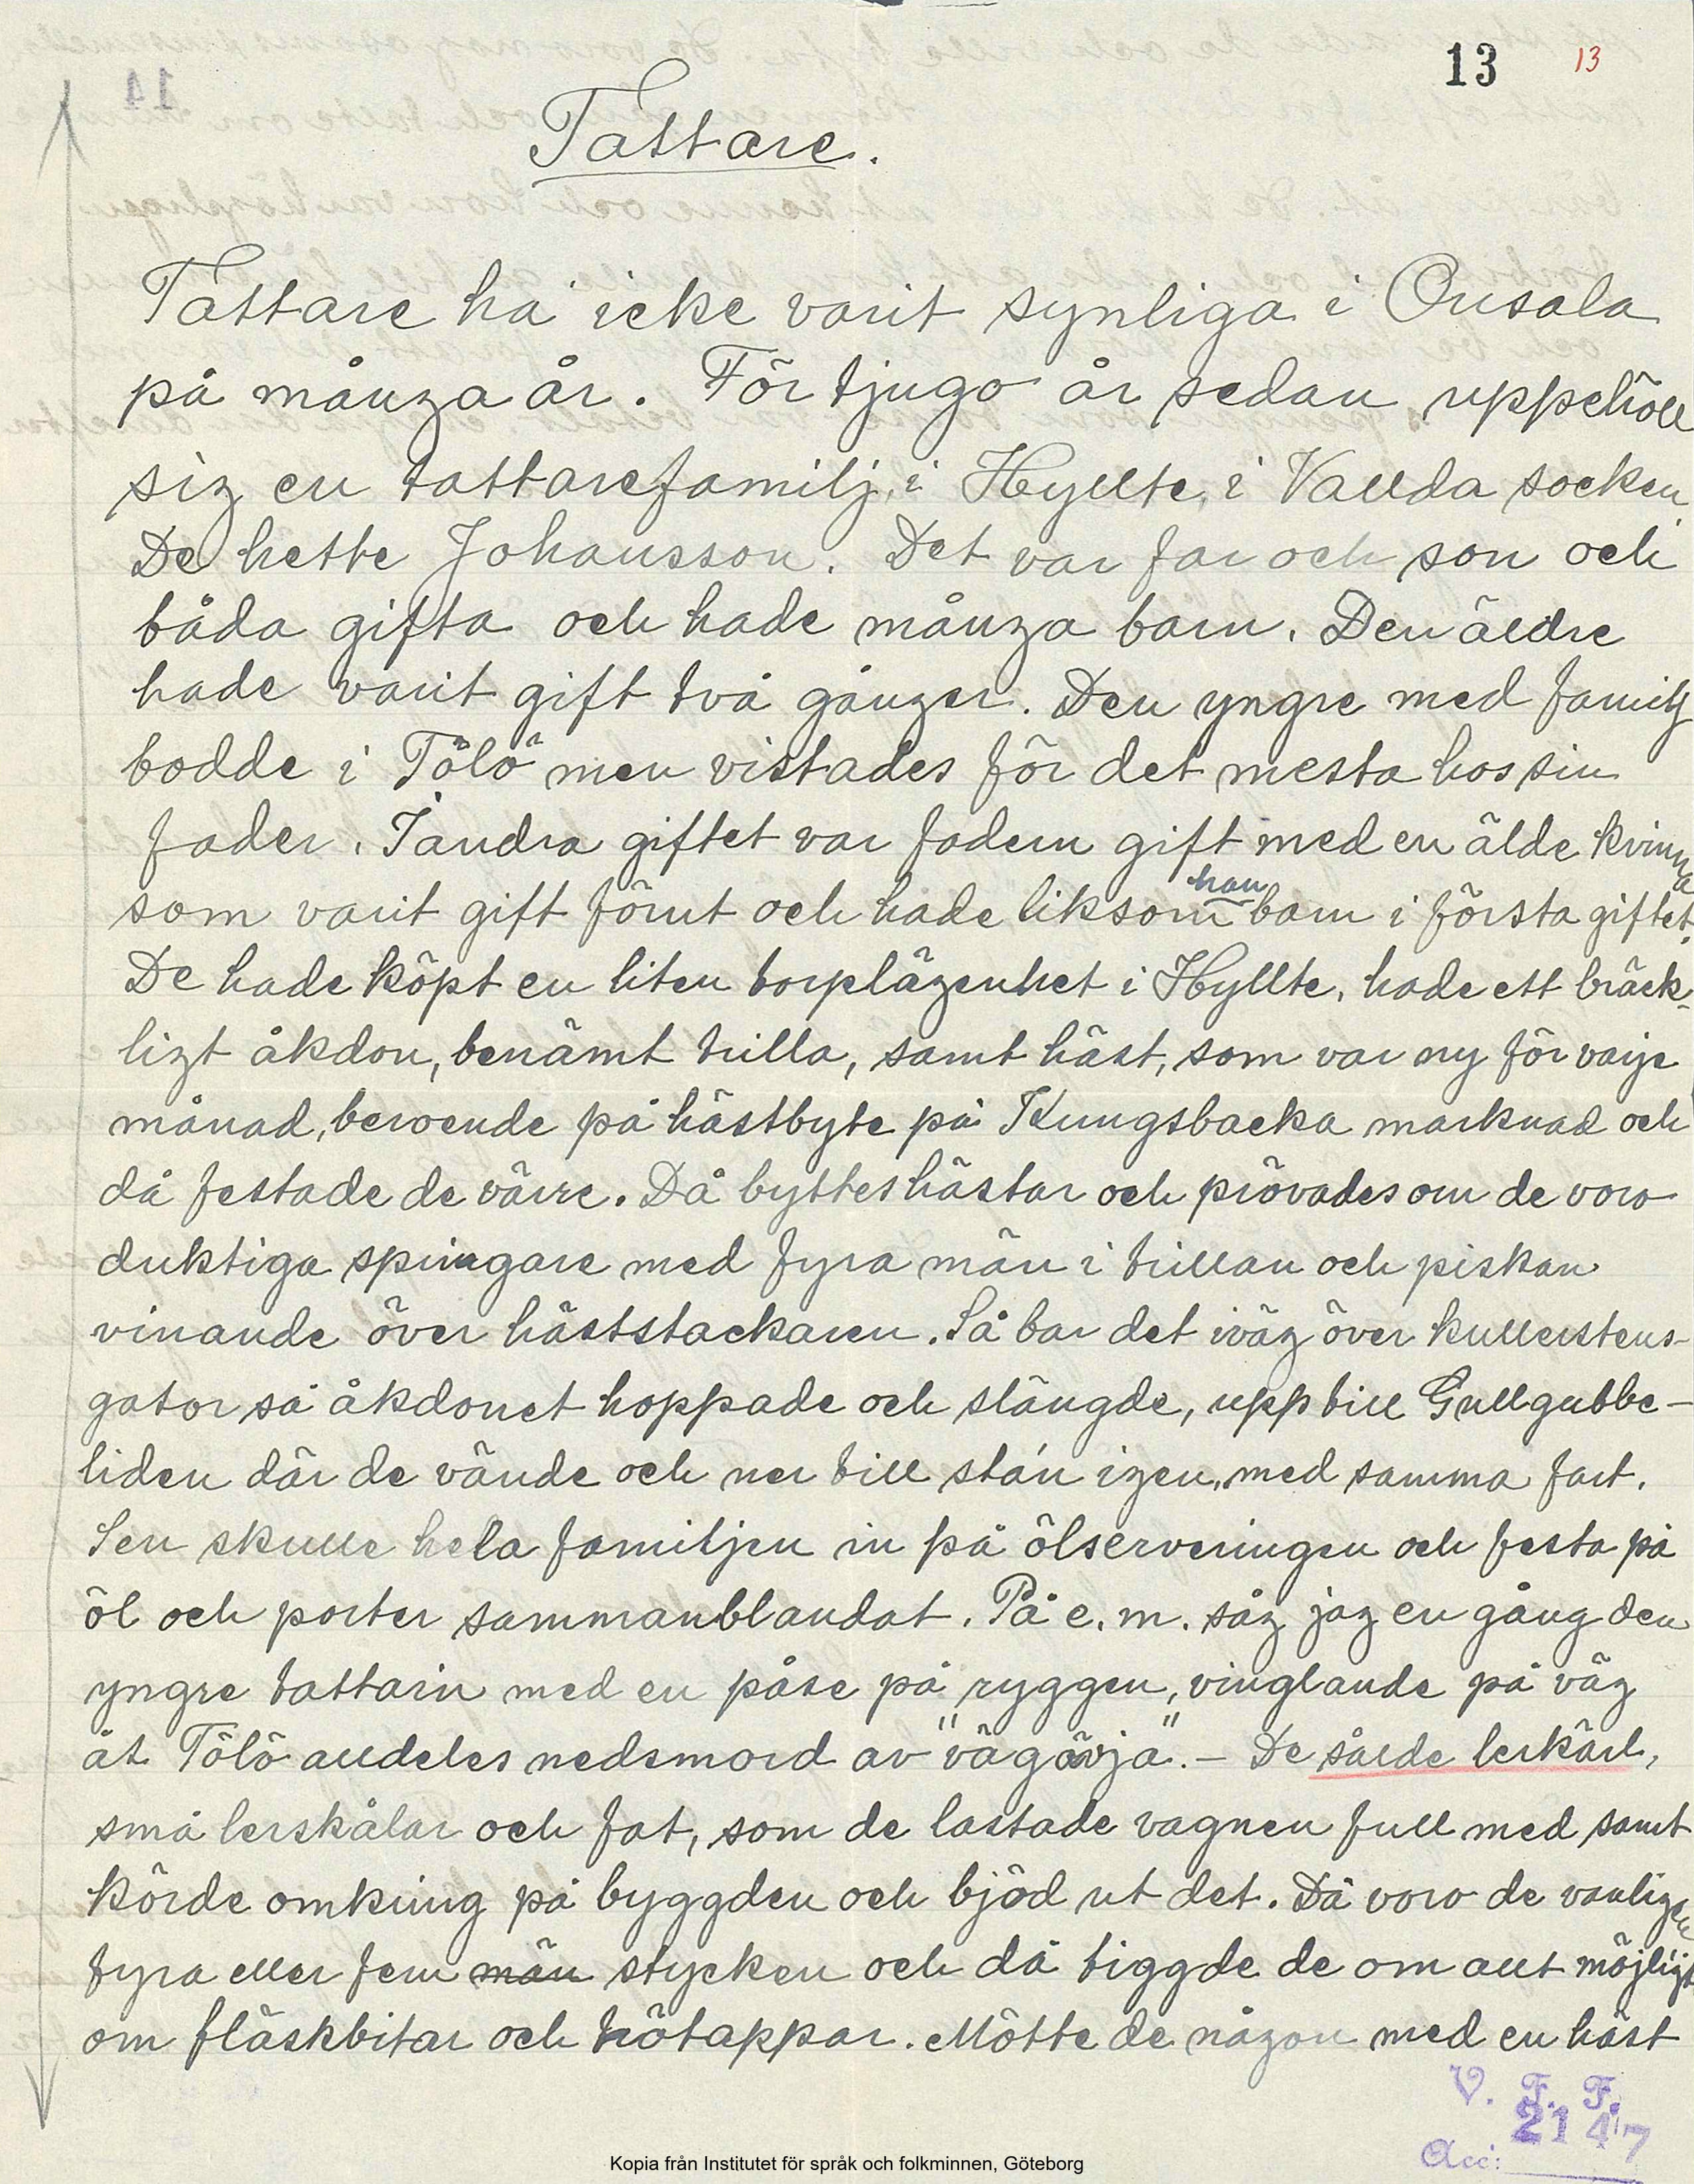 13 13
Tattare.
Tattare ha icke varit synliga i Onsala
på många år. För tjugo år sedan uppehöll
sig en tattarefamilj, i Hyllte, i Vallda socken
De hette Johansson. Det var far och son och
båda gifta och hade många barn. Den äldre
hade varit gift två gånger. Den yngre med familj
bodde i Tölö men vistades för det mesta hos sin
fader. I andra giftet var fadern gift med en älde kvinna
som varit gift förut och hade liksom han barn i första giftet.
De hade köpt en liten torplägenhet i Hyllte, hade ett bräck-
ligt åkdon, benämt trilla, samt häst, som var ny för varje
månad, beroende på hästbyte på Kungsbacka marknad och
då festade de värre. Då byttes hästar och prövades om de voro
duktiga springare med fyra män i trillan och piskan
vinande över häststackaren. Så bar det iväg över kullerstens-
gator så åkdonet hoppade och slängde, upp till Gullgubbe-
liden där de vände och ner till sta'n igen, med samma fart.
Sen skulle hela familjen in på ölserveringen och festa på
öl och porter sammanblandat. På e.m. såg jag en gång den
yngre tattarin med en påse på ryggen, vinglande på väg
åt Tölö alldeles nedsmord av "vägävja". – De sålde lerkärl,
små lerskålar och fat, som de lastade vagnen full med samt
körde omkring på byggden och bjöd ut det. Då voro de vanligen
fyra eller fem män stycken och då tiggde de om allt möjligt
om fläskbitar och hötappar. Mötte de någon med en häst
V. F. F.
Acc: 2147
Kopia från Institutet för språk och folkminnen, Göteborg